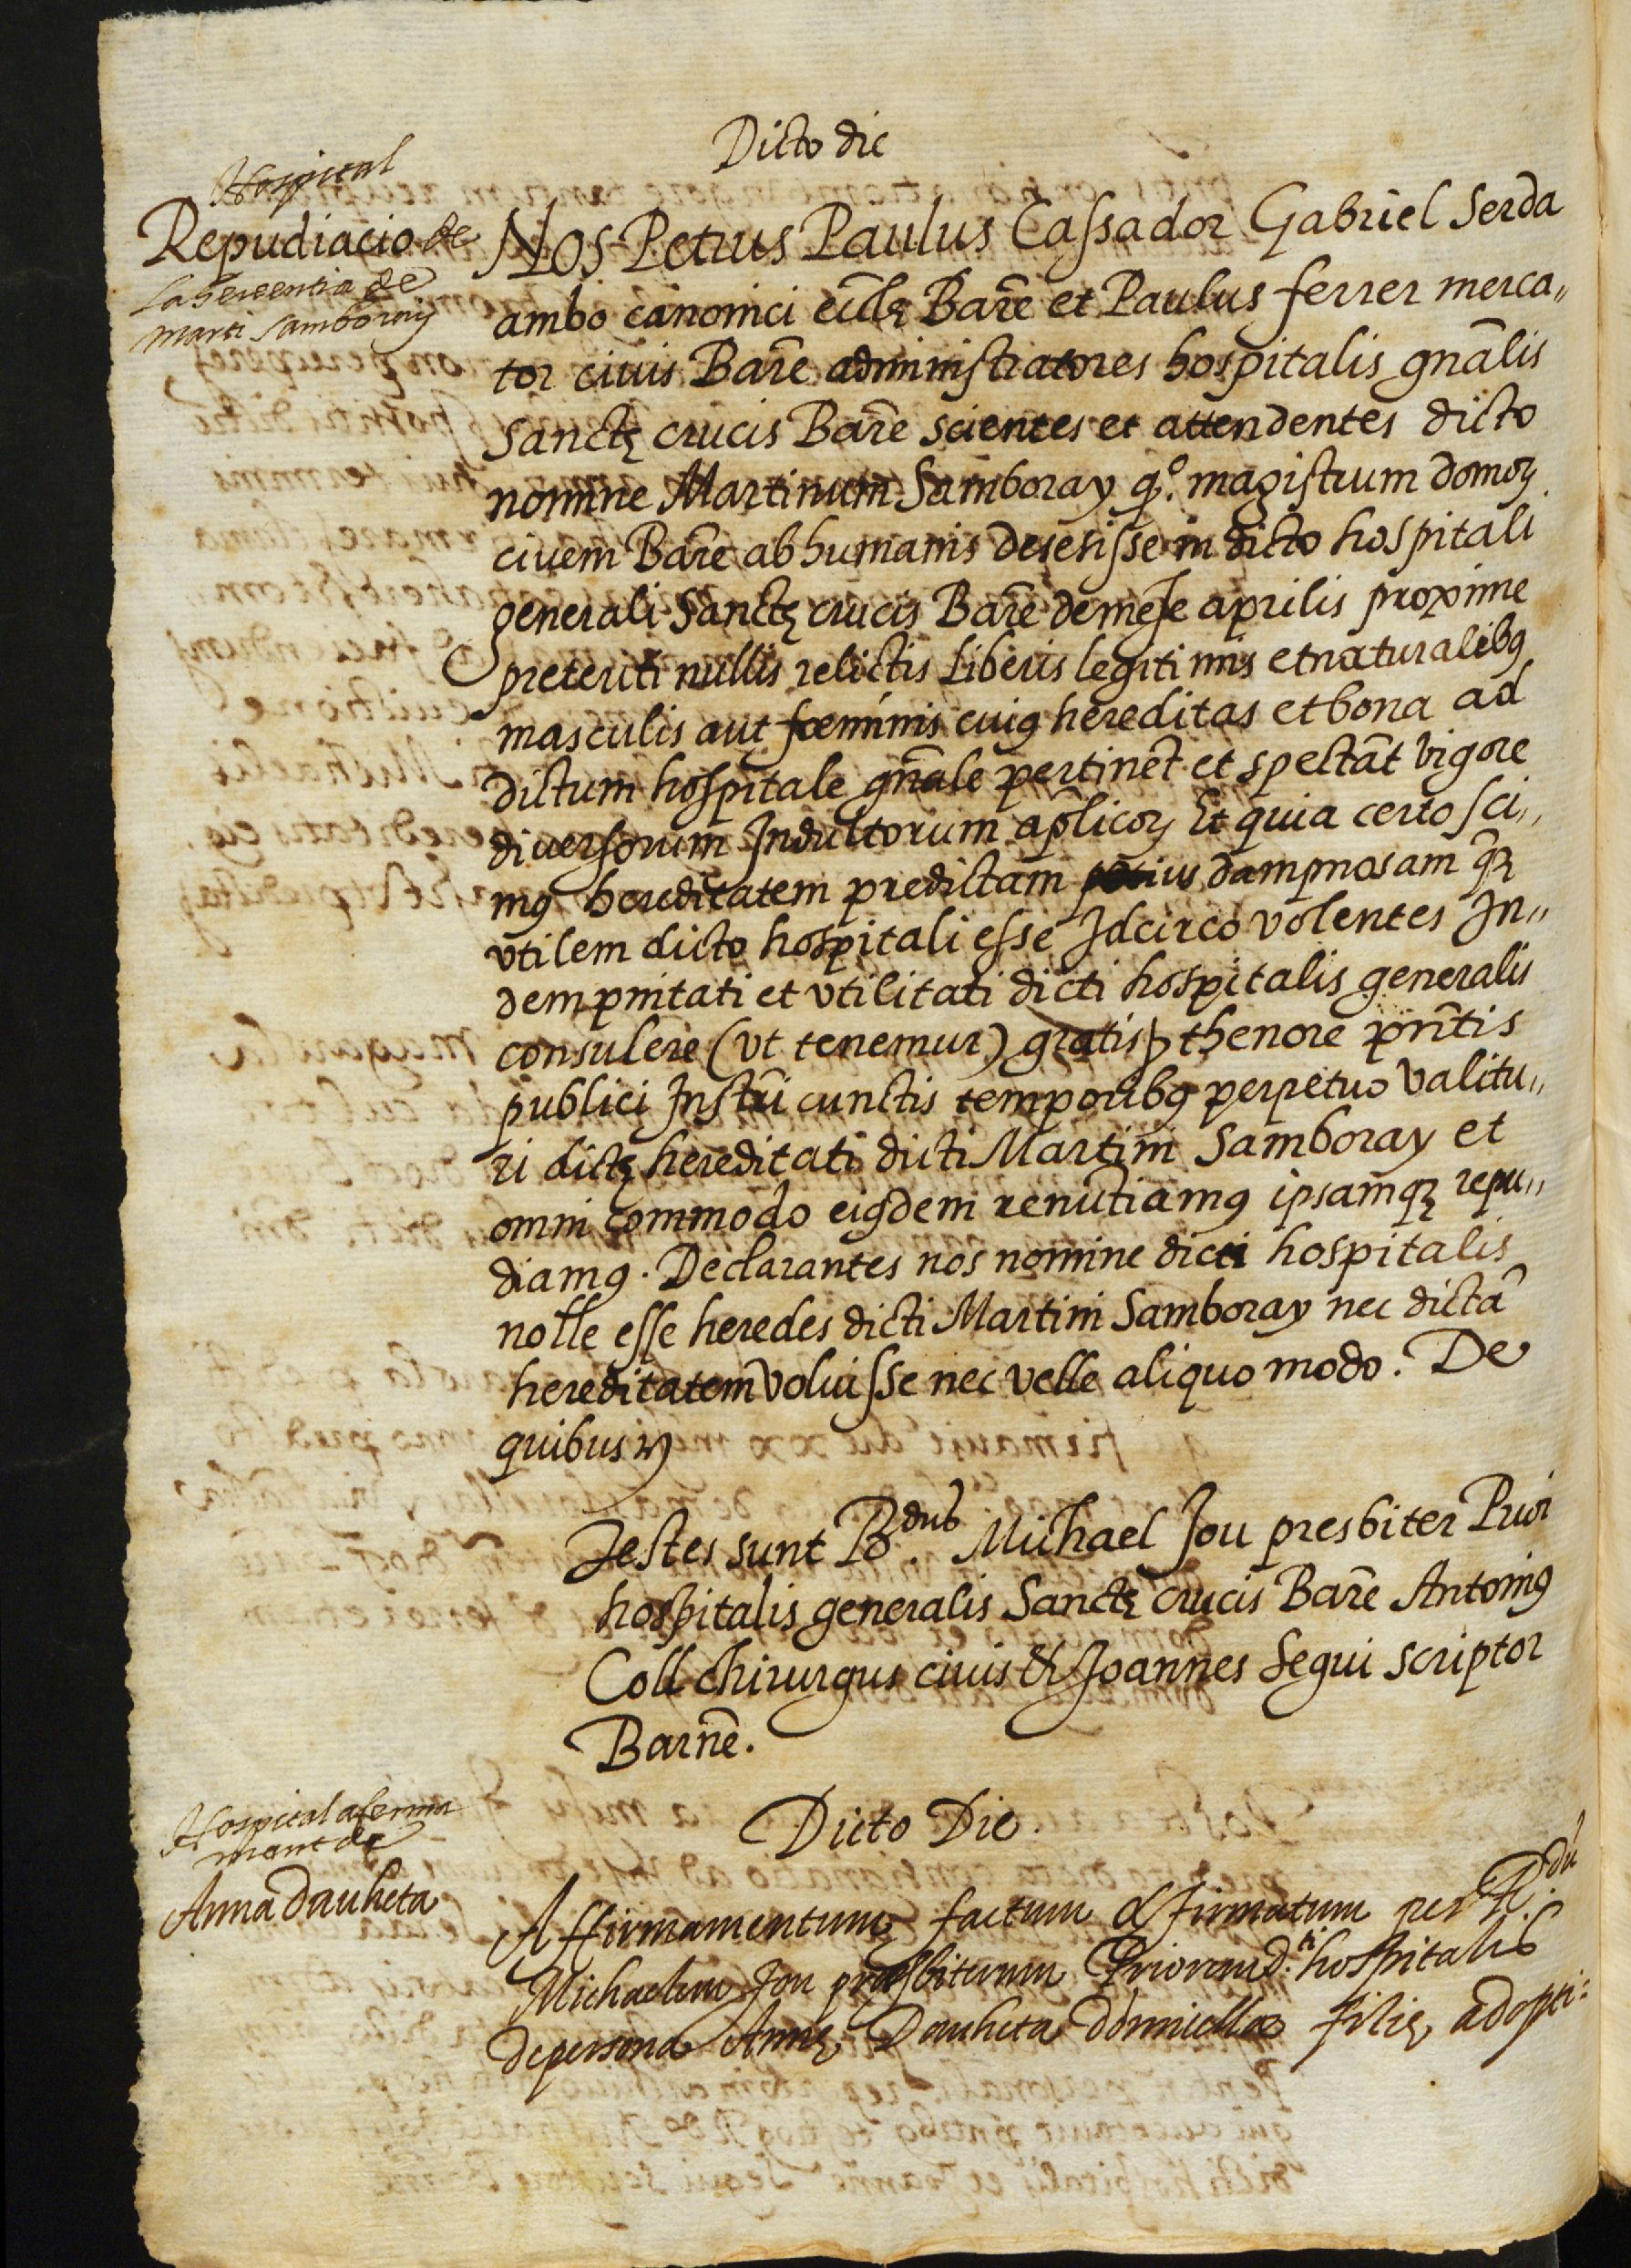 Dicto die
Hospital
Repudiacio de
la herentia de
marti samboray
Nos Petrus Paulus Cassador Gabriel Serda
ambo canonici eccłę Barẽ et Paulus ferrer merca„
tor ciuis Barẽ administratores hospitalis gnãlis
Sanctę crucis Barẽ scientes et attendentes dicto
nomine Martinum Samboray q.º magistrum domoꝝ
ciuem Barẽ ab humanis desesisse in dicto hospitali
generali Sanctę crucis Barẽ de mese aprilis proxime
preteriti nullis relictis liberis legitimis et naturalibꝰ
masculis aut fœminis cuiꝰ hereditas et bona ad
dictum hospitale gnãle pertinẽt et spectãt vigore
diuersorum Indultorum aplicoꝝ Et quia certo sci„
mꝰ hereditatem predictam potius dampnosam q̃ꝫ
vtilem dicto hospitali esse Idcirco volentes In„
dempnitati et vtilitati dicti hospitalis generalis
consulere (vt tenemur) gratis ꝑ thenore pñtis
publici Instrũ cunctis temporibꝰ perpetuo valitu„
ri dictę hereditati dicti Martini Samboray et
omni commodo eiꝰdem renũtiamꝰ ipsamqꝫ repu„
diamꝰ. Declarantes nos nomine dicti hospitalis
nolle esse heredes dicti Martini Samboray nec dictã
hereditatem voluisse nec velle aliquo modo. De
quibus ꝛc
Testes sunt R.dus Michael Jou presbiter Prior
hospitalis generalis Sanctę crucis Barẽ Antoniꝰ
Coll chirurgus ciuis & Joannes Segui scriptor
Barnẽ.
Dicto Die.
Hospital afermа
ment de
Anna Dauheta
Affirmamentum factum & firmatum per R.dũ
Michaelem Jou præsbiterum Priorem d.ti hospitalis
de persona Annę Dauheta domicellæ filię adopti: